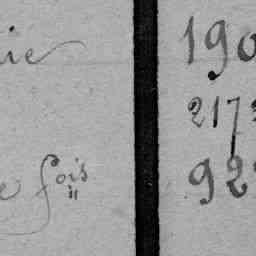 ie 190
217
e fois 92